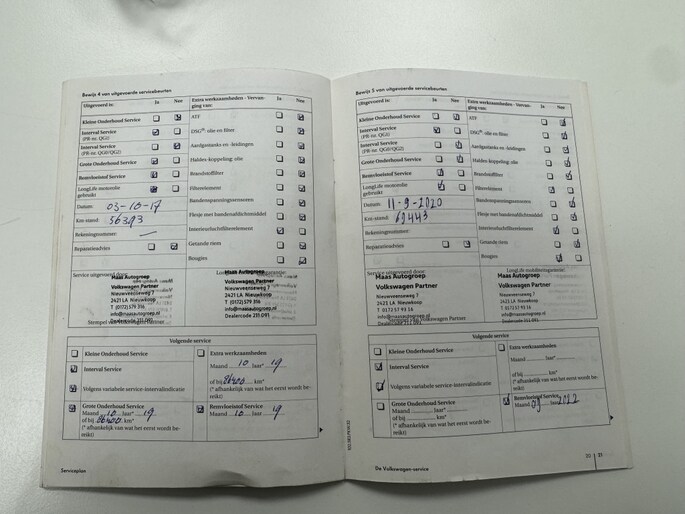 Bewijs 4 van uitgevoerde servicebeurten
Uitgevoerd is: Ja Nee
Kleine Onderhoud Service
Interval Service
(PR-nr. QG1)
Interval Service
(PR-nr. QG0/QG2)
Grote Onderhoud Service
Remvloeistof Service
LongLife motorolie
gebruikt
Datum: 03-10-17
Km-stand: 56393
Rekeningnummer: —
Reparatieadvies
Extra werkzaamheden - Vervan-
ging van: Ja Nee
ATF
DSG®-olie en filter
Aardgastanks en -leidingen
Haldex-koppeling: olie
Brandstoffilter
Filterelement
Bandenspanningssensoren
Flesje met bandenafdichtmiddel
Interieurluchtfilterelement
Getande riem
Bougies
Service uitgevoerd door:
Maas Autogroep
Volkswagen Partner
Nieuwveenseweg 7
2421 LA Nieuwkoop
T (0172) 579 316
info@maasautogroep.nl
Stempel van Volkswagen Partner
Maas Autogroep
Volkswagen Partner
Nieuwveenseweg 7
2421 LA Nieuwkoop
T (0172) 579 316
info@maasautogroep.nl
Dealercode 211.091
Volgende service
Kleine Onderhoud Service
Interval Service
Volgens variabele service-intervalindicatie
Grote Onderhoud Service
Maand 10 Jaar* 19
of bij 86400 km*
(* afhankelijk van wat het eerst wordt be-
reikt)
Extra werkzaamheden
Maand 10 jaar* 19
of bij 86400 km*
(* afhankelijk van wat het eerst wordt be-
reikt)
Remvloeistof Service
Maand 10 jaar 19
Serviceplan
Bewijs 5 van uitgevoerde servicebeurten
Uitgevoerd is: Ja Nee
Kleine Onderhoud Service
Interval Service
(PR-nr. QG1)
Interval Service
(PR-nr. QG0/QG2)
Grote Onderhoud Service
Remvloeistof Service
LongLife motorolie
gebruikt
Datum: 11-9-2020
Km-stand: 69443
Rekeningnummer:
Reparatieadvies
Extra werkzaamheden - Vervan-
ging van: Ja Nee
ATF
DSG®-olie en filter
Aardgastanks en -leidingen
Haldex-koppeling: olie
Brandstoffilter
Filterelement
Bandenspanningssensoren
Flesje met bandenafdichtmiddel
Interieurluchtfilterelement
Getande riem
Bougies
Service uitgevoerd door:
LongLife mobiliteitsgarantie:
Maas Autogroep
Volkswagen Partner
Nieuwveenseweg 7
2421 LA Nieuwkoop
T 0172 57 93 16
info@maasautogroep.nl
Stempel van Volkswagen Partner
Maas Autogroep
Volkswagen Partner
Nieuwveenseweg 7
2421 LA Nieuwkoop
T 0172 57 93 16
info@maasautogroep.nl
Volgende service
Kleine Onderhoud Service
Interval Service
Volgens variabele service-intervalindicatie
Grote Onderhoud Service
Maand jaar*
of bij km*
(* afhankelijk van wat het eerst wordt be-
reikt)
Extra werkzaamheden
Maand jaar*
of bij km*
(* afhankelijk van wat het eerst wordt be-
reikt)
Remvloeistof Service
Maand 09 jaar 2022
De Volkswagen-service
21